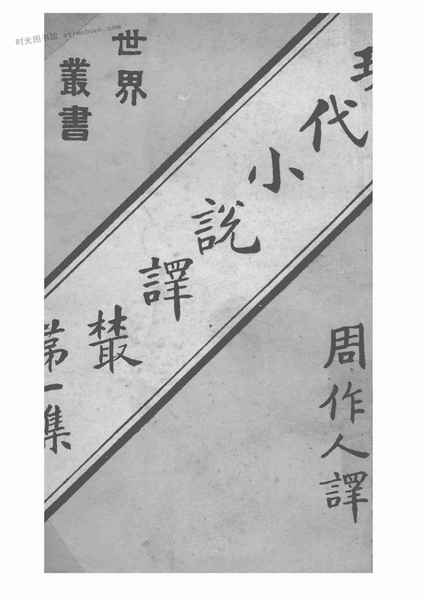 时光图书馆
世界
叢書
現代小說譯叢
第一集
周作人譯